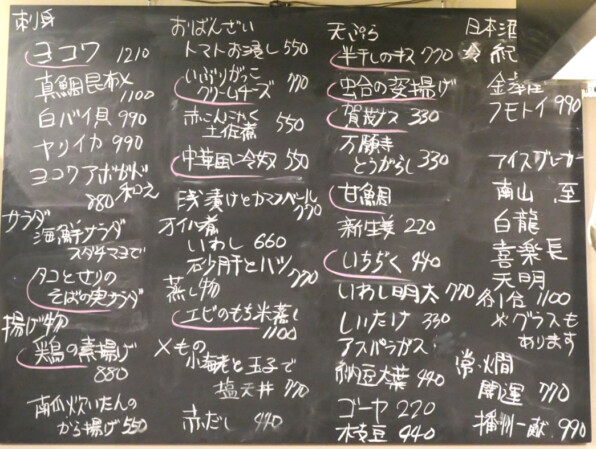 刺身
ヨコワ 1210
真鯛昆布〆
1100
白バイ貝 990
ヤリイカ 990
ヨコワアボガド
和え
880
サラダ
海鮮サラダ
スダチマヨで
タコとせりの
そばの実サラダ
揚げ物
鶏の素揚げ
880
南瓜炊いたんの
から揚げ 550
おばんざい
トマトお浸し 550
いぶりがっこ
クリームチーズ 770
赤こんにゃく
土佐煮 550
中華風冷奴 550
浅漬けとカマンベール
770
オイル煮
いわし 660
砂肝とハツ
770
蒸し物
エビのもち米蒸し
1100
〆もの
小海老と玉子で
塩天丼 770
赤だし 440
天ぷら
半干しのキス 770
虫合の変揚げ
賀茂ナス 330
万願寺
とうがらし 330
甘鯛
新生姜 220
いちぢく 440
いわし明太 770
しいたけ 330
アスパラガス
納豆大葉 440
ゴーヤ 220
枝豆 440
日本酒
紀
金澤屋
フモトイ 990
アイスブレーカー
南山 至
白龍
喜楽長
天明
各1合 1100
※グラスも
あります
常燗
開運 770
播州一献 990